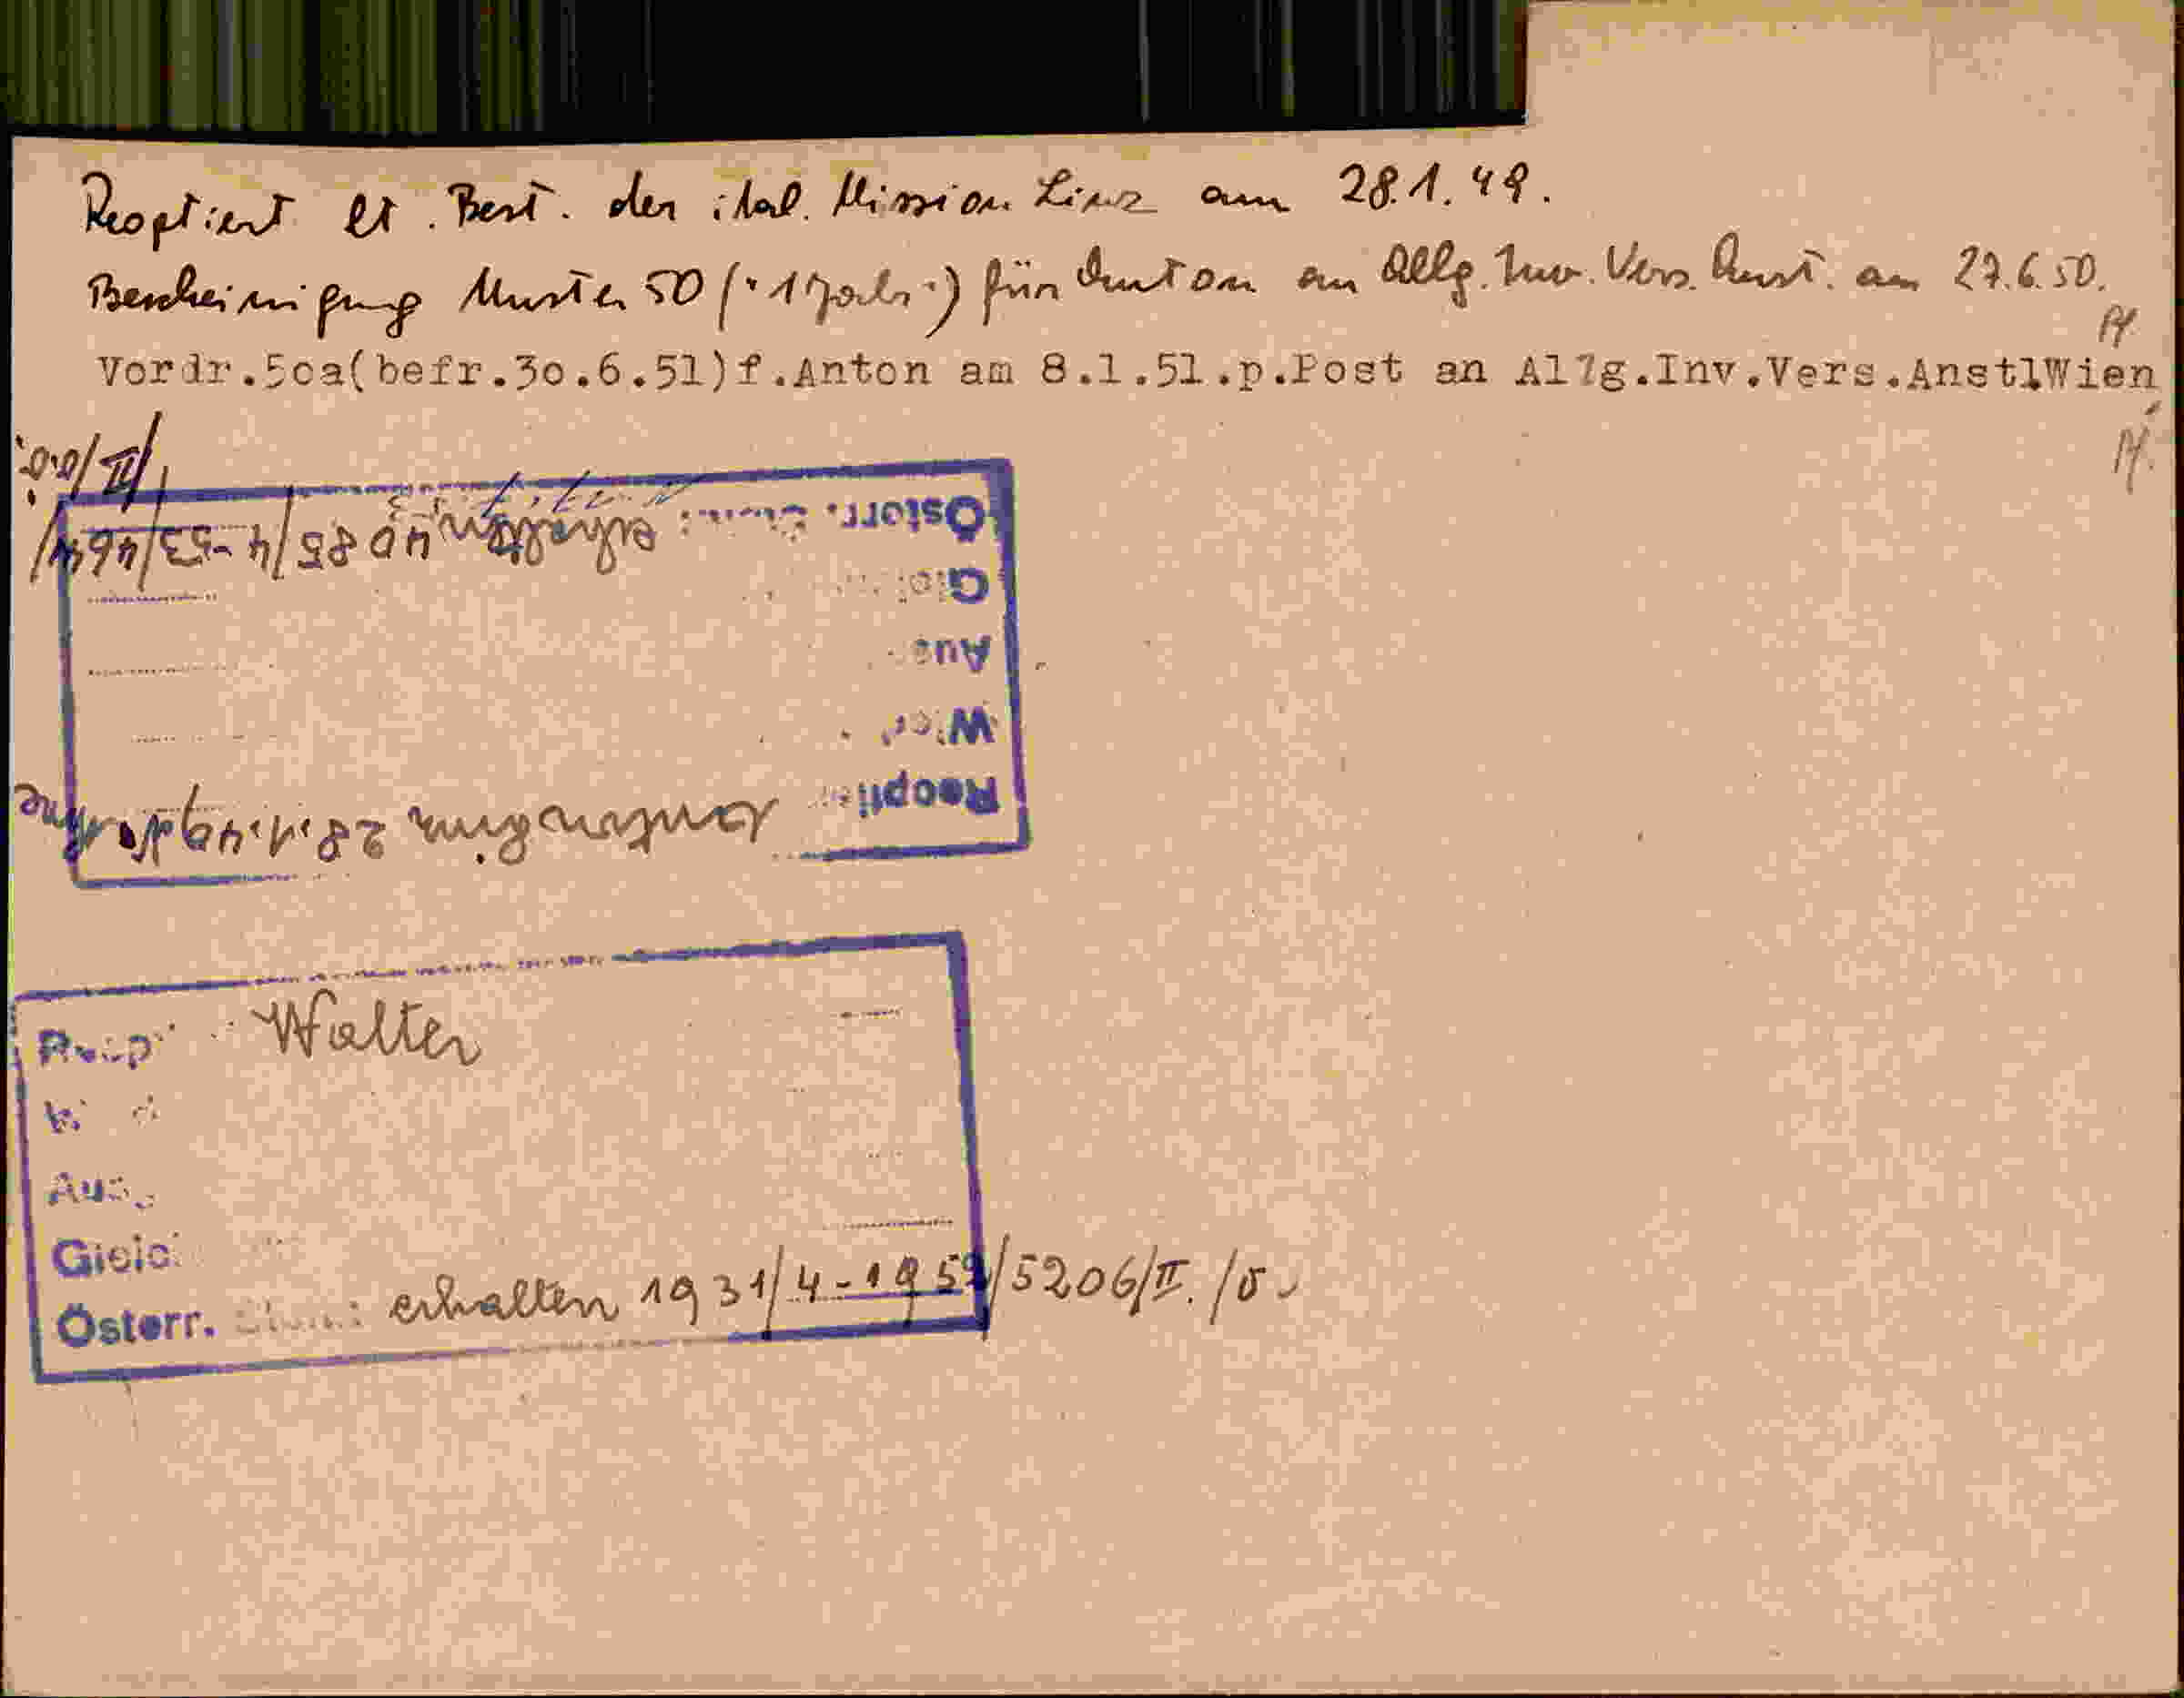 Reoptiert lt. Best. der ital. Mission Linz am 28.1.49.
Bescheinigung Muster 50 ("1 Jahr") für Anton an Allg. Inv. Vers. Anst. am 27.6.50.
Pf.
Vordr.5oa(befr.3o.6.51)f.Anton am 8.1.51.p.Post an Allg.Inv.Vers.AnstlWien
Pf.
Reoptier 28.1.49
Wier
Aus
Glei
Österr. erhalten 4085/4-53/464/II/
Walter
Aus
Gleic
Österr. erhalten 1931/4-1952/5206/II./